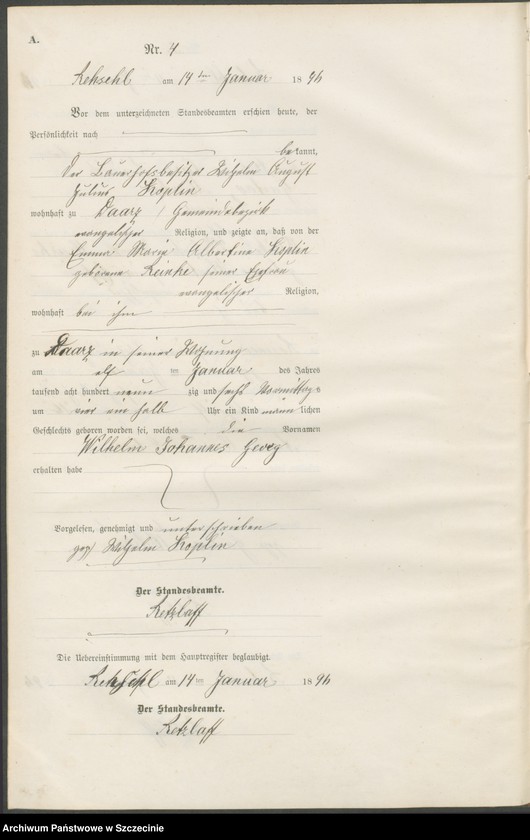 A.
Nr. 4
Rehsehl am 14 ten Januar 1896
Vor dem unterzeichneten Standesbeamten erschien heute, der
Persönlichkeit nach
bekannt,
der Bauerhofsbesitzer Wilhelm August
Julius Koplin
wohnhaft zu Daarz / Gemeindebezirk
evangelischer Religion, und zeigte an, daß von der
Emma Marie Albertine Koplin
geborene Reinke seiner Ehefrau
evangelischer Religion,
wohnhaft bei ihm
zu Daarz in seiner Wohnung
am elf ten Januar des Jahres
tausend acht hundert neun zig und sechs Vormittags
um vier ein halb Uhr ein Kind männlichen
Geschlechts geboren worden sei, welches die Vornamen
Wilhelm Johannes Georg
erhalten habe
Vorgelesen, genehmigt und unterschrieben
gez. Wilhelm Koplin
Der Standesbeamte.
Retzlaff
Die Uebereinstimmung mit dem Hauptregister beglaubigt.
Rehsehl am 14 ten Januar 1896
Der Standesbeamte.
Retzlaff
Archiwum Państwowe w Szczecinie